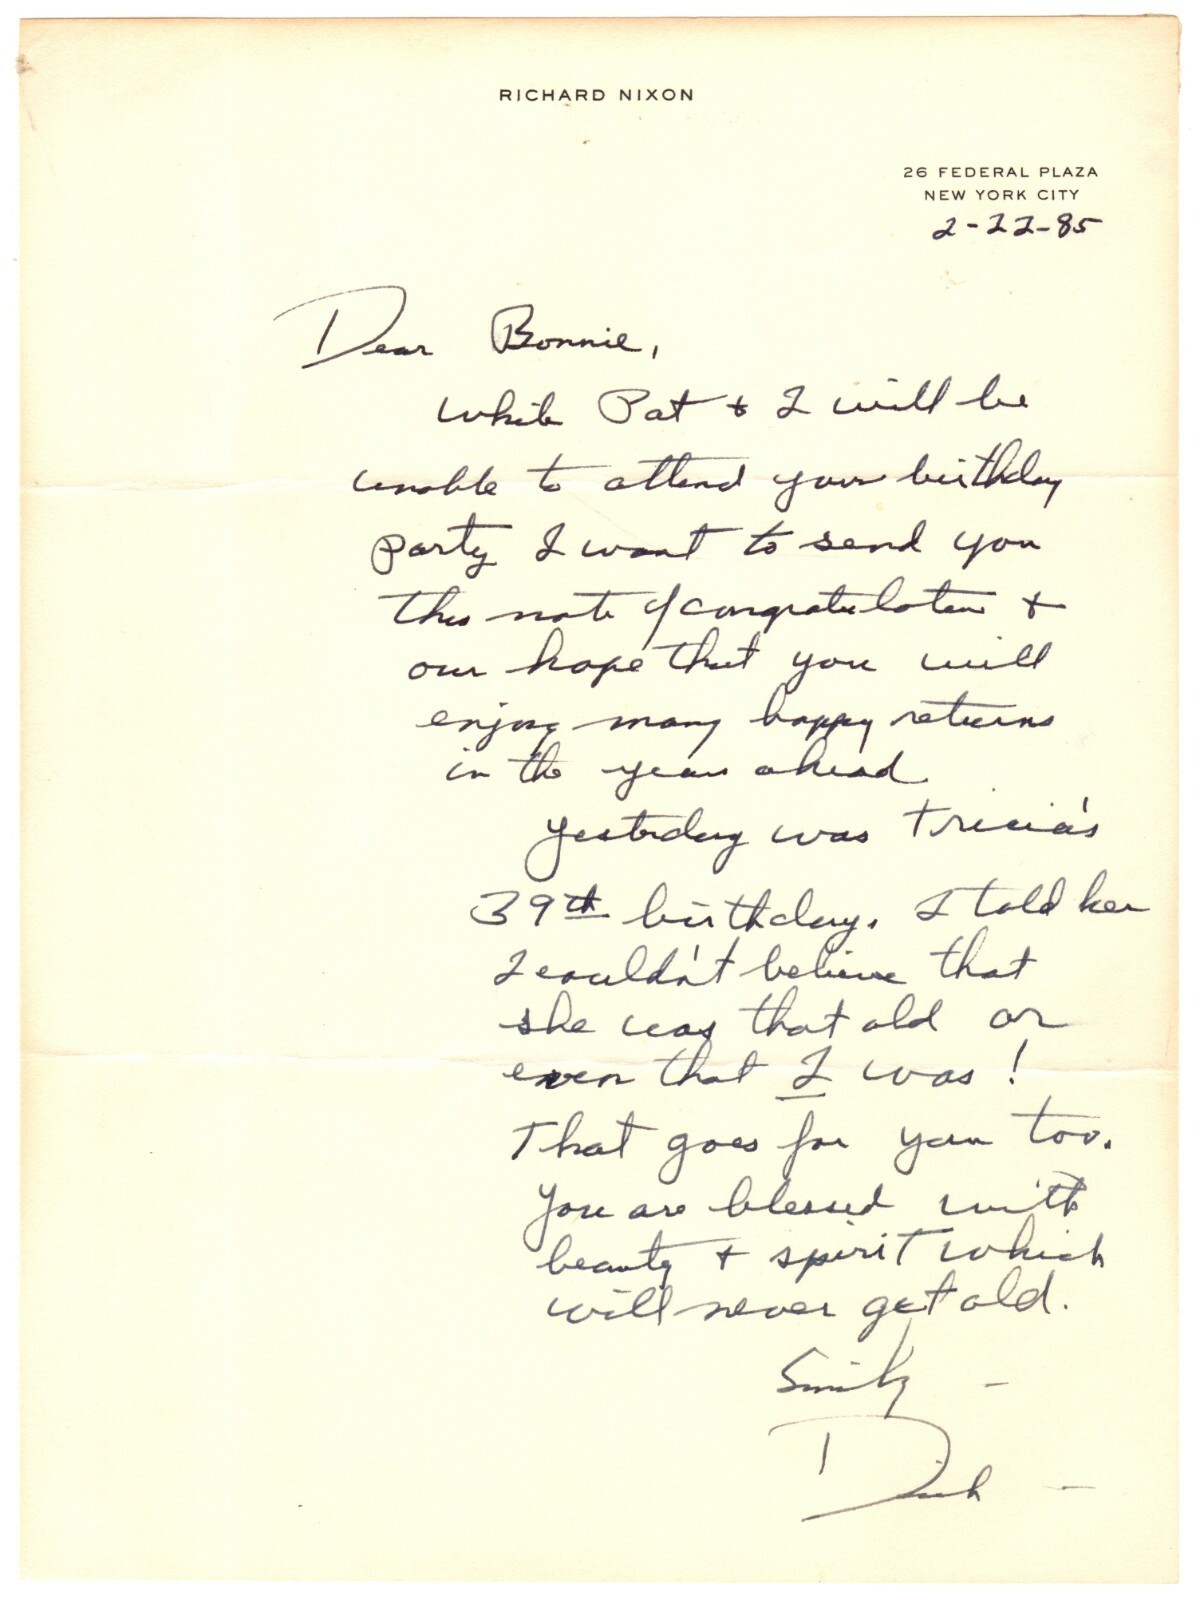 RICHARD NIXON
26 FEDERAL PLAZA
NEW YORK CITY
2-22-85
Dear Bonnie,
While Pat + I will be
unable to attend your birthday
party I want to send you
this note of congratulation +
our hope that you will
enjoy many happy returns
in the years ahead
Yesterday was Tricia's
39th birthday. I told her
I couldn't believe that
she was that old or
even that I was!
That goes for you too.
You are blessed with
beauty + spirit which
will never get old.
Sincerely –
Dick –